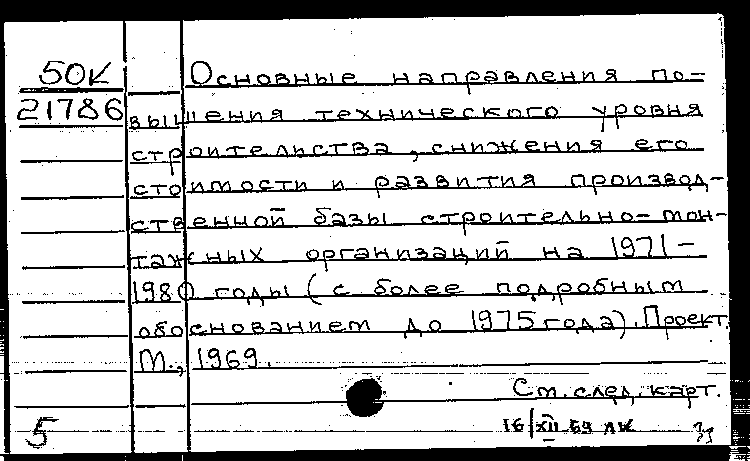 50К
21786
Основные направления по-
вышения технического уровня
строительства, снижения его
стоимости и развития производ-
ственной базы строительно-мон-
тажных организаций на 1971-
1980 годы (с более подробным
обоснованием до 1975 года). Проект.
М., 1969.
См. след. карт.
5
16/XII-69